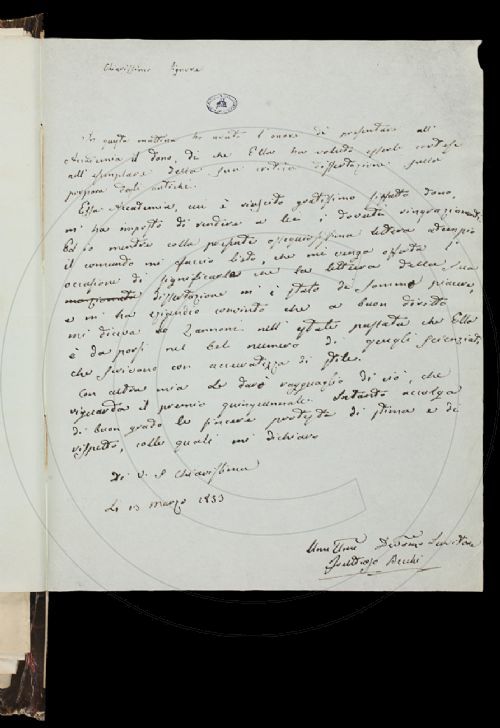 Chiarissimo Signore
In questa mattina ho avuto l'onore di presentare all'
Accademia il dono, di che Ella ha voluto essere cortese
all' esemplare della sua critica dissertazione sulla
porpora degli antichi.
Essa Accademia, cui è riescito gratissimo siffatto dono,
mi ha imposto di rendere a lei i dovuti ringraziamenti.
Ed io mentre colla presente ossequiosissima lettera adempio
il comando mi chiamo lieto, che mi venga offerta
occasione di significarle che la lettura della sua
dissertazione mi è stata di sommo piacere,
e mi ha eziandio convinto che a buon diritto
mi diceva lo Zannoni nell' estate passata che Ella
è da porsi nel bel numero di quegli scienziati,
che scrivono con accuratezza di stile.
Con altra mia le darò ragguaglio di ciò, che
riguarda il premio quinquennale. Intanto accolga
di buon grado le sincere proteste di stima e di
rispetto, colle quali mi dichiaro
Di V. S. Chiarissima
Li 13 Marzo 1833
Devmo Servitore
Fruttuoso Becchi